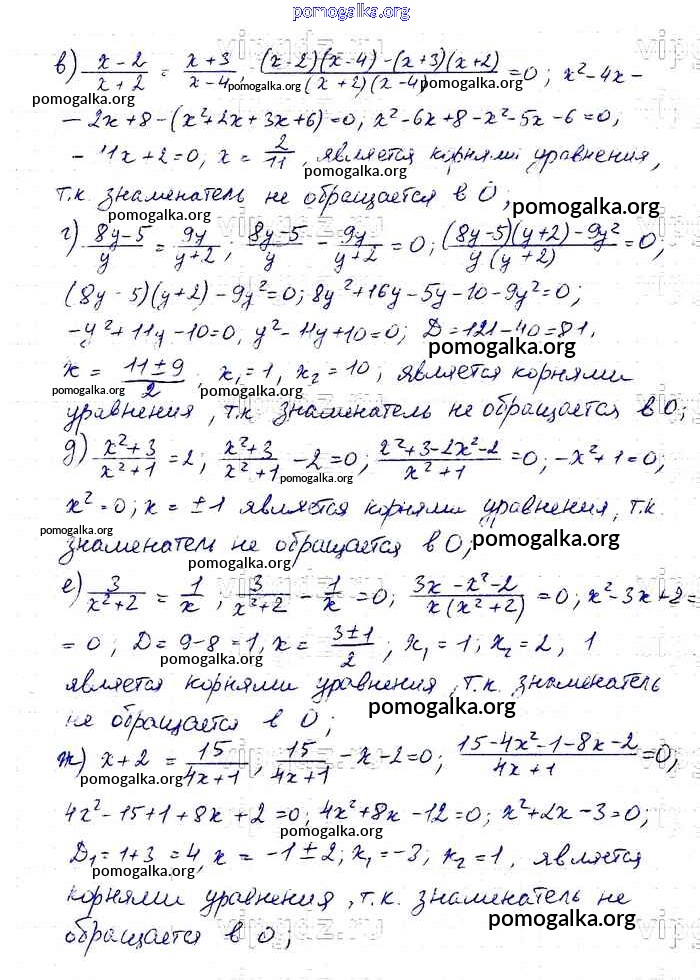 pomogalka.org
в) (x-2)/(x+2) = (x+3)/(x-4), ((x-2)(x-4)-(x+3)(x+2))/((x+2)(x-4)) =0; x²-4x-
pomogalka.org pomogalka.org
-2x+8-(x²+2x+3x+6)=0; x²-6x+8-x²-5x-6=0;
-11x+2=0, x = 2/11, является корнями уравнения,
pomogalka.org
т.к. знаменатель не обращается в 0;
pomogalka.org pomogalka.org
г) (8y-5)/y = 9y/(y+2); (8y-5)/y - 9y/(y+2) = 0; ((8y-5)(y+2)-9y²)/(y(y+2)) =0;
(8y-5)(y+2)-9y²=0; 8y²+16y-5y-10-9y²=0;
-y²+11y-10=0, y²-11y+10=0; D=121-40=81,
pomogalka.org
x = (11±9)/2, x₁=1, x₂=10; является корнями
pomogalka.org pomogalka.org
уравнения, т.к. знаменатель не обращается в 0;
д) (x²+3)/(x²+1) =2; (x²+3)/(x²+1) -2=0; (x²+3-2x²-2)/(x²+1) =0; -x²+1=0;
pomogalka.org
x²=0; x=±1 является корнями уравнения, т.к.
pomogalka.org
знаменатель не обращается в 0,
pomogalka.org
pomogalka.org
е) 3/(x²+2) = 1/x; 3/(x²+2) - 1/x =0; (3x-x²-2)/(x(x²+2)) =0; x²-3x+2=
=0; D=9-8=1, x = (3±1)/2; x₁=1; x₂=2, 1
pomogalka.org
является корнями уравнения, т.к. знаменатель
не обращается в 0;
pomogalka.org
ж) x+2 = 15/(4x+1), 15/(4x+1) -x-2=0; (15-4x²-1-8x-2)/(4x+1) =0,
pomogalka.org
4x²-15+1+8x+2=0; 4x²+8x-12=0; x²+2x-3=0;
pomogalka.org
D₁=1+3=4, x=-1±2; x₁=-3; x₂=1, является
pomogalka.org
корнями уравнения, т.к. знаменатель не
pomogalka.org
обращается в 0;